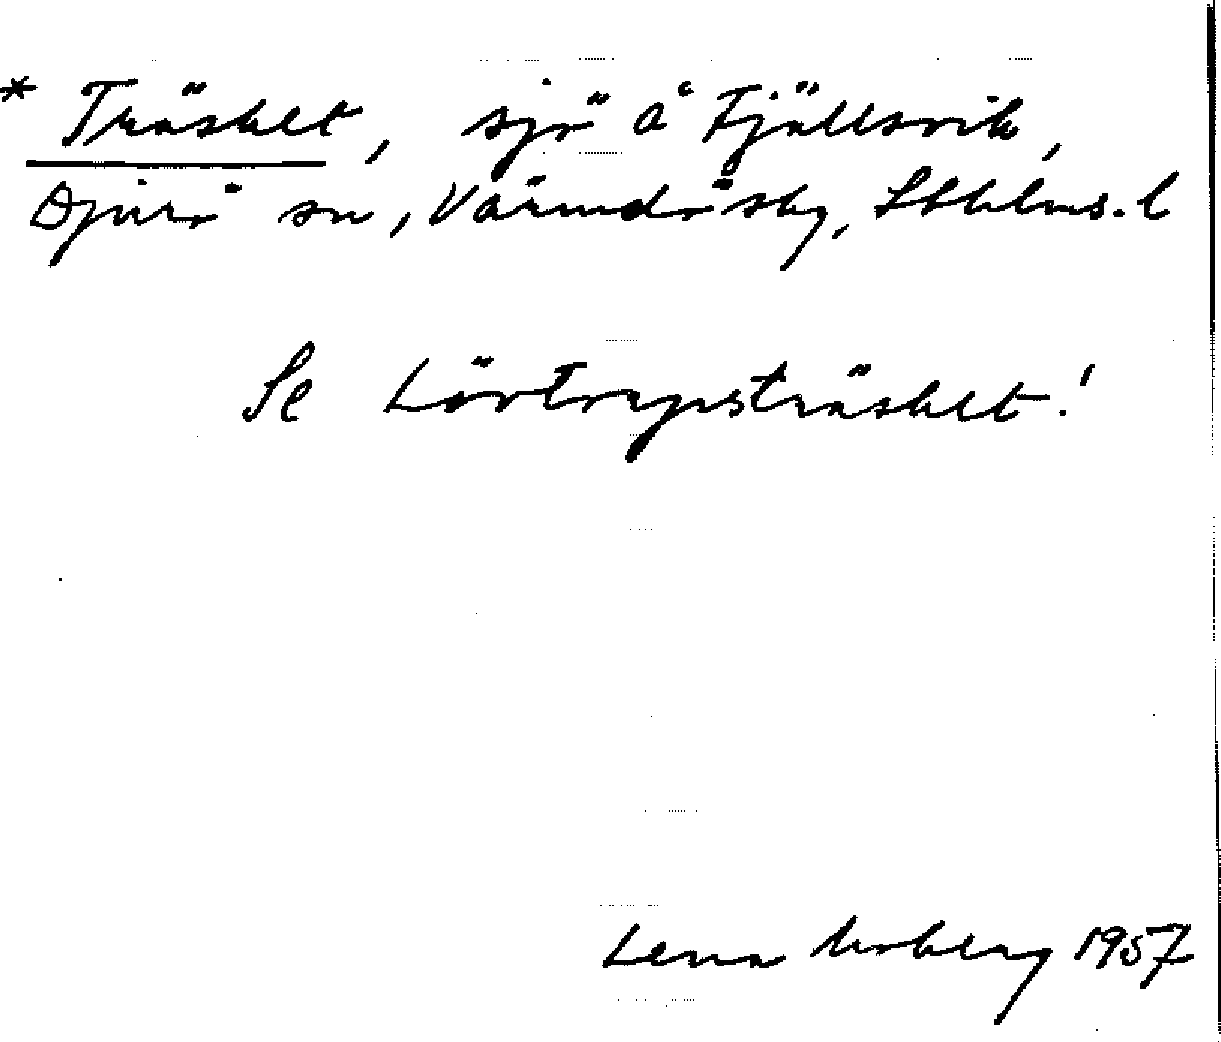 * Träsket, sjö å Fjällsvik,
Djurö sn, Värmdö skg, Sthlms. l
Se Lövtorpsträsket!
Lena Moberg 1957